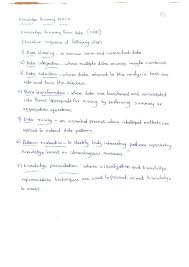 Knowledge Discovery Process
Knowledge Discovery from Data (KDD)
Iterative sequence of following steps
1) Data cleaning - to remove noise and inconsistent data
2) Data integration - where multiple data sources maybe combined
3) Data selection - where data relevant to the analysis task are
retrieved from the database.
4) Data transformation - where data are transformed and consolidated
into forms appropriate for mining by performing summary or
aggregation operations
5) Data mining - an essential process where intelligent methods are
applied to extract data patterns.
6) Pattern evaluation - to identify truly interesting patterns representing
knowledge based on interestingness measures
7) Knowledge presentation - where visualization and knowledge
representation techniques are used to present mined knowledge
to users